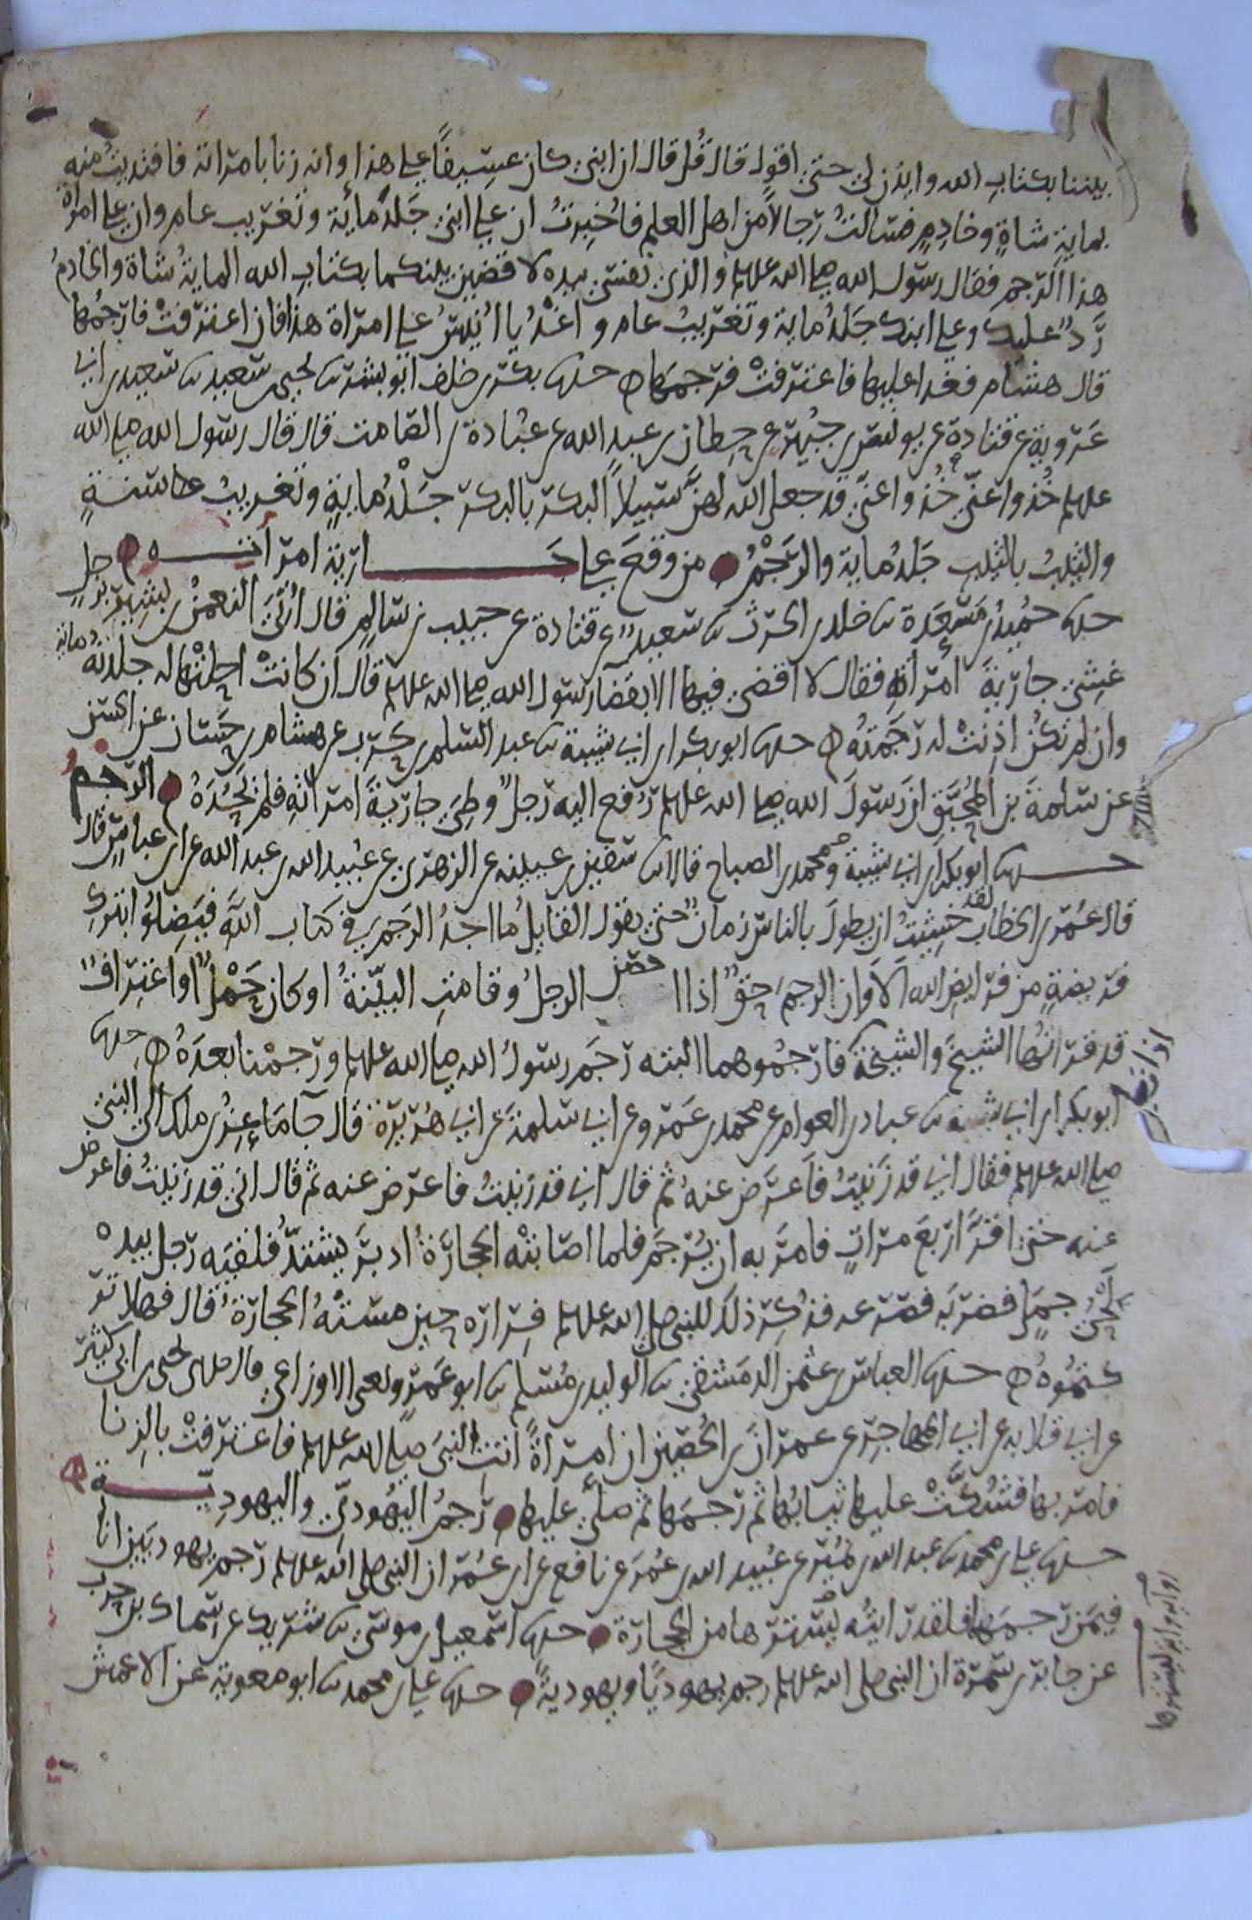 بيننا بكتاب الله وايذن لي حتى اقول قال قُل قال ان ابني كان عسِيفًا على هذا وانه زنا بامراته فافتديتُ منه
بمايةِ شاةٍ وخادمٍ فسالتُ رجالاً من اهل العلم فاُخبِرتُ ان على ابني جَلدُ مائية وتغريب عام وان على امراة
هذا الرجم فقال رسول الله صلى الله علىه والذي نفسي بيده لاقضين بينكما بكتاب الله الماية شاة والخادمُ
رَدٌّ عليك وعلى ابنك جَلدُ ماية وتغريبُ عام واغدُ يا اُنيسُ على امراة هذا فان اعترفتْ فارجُمها
قال هشام فغدا عليها فاعترفتْ فرجمها حدثنا بكر بن خلف ابو بشر ثنا يحيى بن سعيد ثنا سعيد بن ابي
عَروبة عن قتادة عن يونس بن جُبير عن حِطان بن عبد الله عن عُبادة بن الصامت قال قال رسول الله صلى الله
علىه خُذوا عنّي خُذوا عنّي قد جعل الله لهنَّ سبيلاً البكر بالبكر جَلْدُ مايةٍ وتغريبُ سنةٍ
والثيبُ بالثيبِ جَلدُ ماية والرَّجْمُ من وقعَ على جَارية امراتــه
حدثنا حُميد بن مَسعَدة ثنا خلد بن الحرث ثنا سعيدٌ عن قتادة عن حبيب بن سالم قال اُتيَ النعمن بن بشير برجلٍ
غشِيَ جاريةَ امراته فقال لا اقضي فيها الا بقضا رسول الله صلى الله علىه قال ان كانتْ احلتْها له جلدتُه مايةً
وان لم تكن اذِنتْ له رجمتُه حدثنا ابو بكر بن ابي شيبة ثنا عبد السلم بن حرب عن هشام بن حسان عن الحسن
عن سلمةَ بن المُحبَّق ان رسولَ الله صلى الله علىه رُفع اليه رجلٌ وطِيَ جاريةَ امراتِه فلم يَحُدَهُ الرجمُ
حدثنا ابو بكر بن ابي شيبة ومحمد بن الصباح قالا ثنا سفين بن عيينه عن الزهري عن عُبيد الله بن عبد الله عن ابن عباس قال
قال عُمر بن الخطاب لقد خشِيتُ ان يطولَ بالناس زمانٌ حتى يقول القايلُ ما اجدُ الرجمَ في كتاب اللَّه فيَضِلوُا بتركِ
فريضةٍ من فرايض الله اَلاَ وان الرجمَ حقٌ اذا احصن الرجلُ وقامت البيّنةُ او كان حَمْلٌ او اعترافٌ
قد قراتُها الشيخَ والشيخة فارجُموهما البته رجَم رسولُ الله صلى الله علىه ورجمْنا بعدَهُ حدثنا
ابو بكر بن ابي شيبه ثنا عباد بن العوام عن محمد بن عَمرو عن ابي سلمة عن ابي هُريرة قال جا ماعز بن ملك الى النبي
صلى الله علىه فقال اني قد زَنيتُ فاَعرَض عنهُ ثم قال اني قد زنيتُ فاعرَض عنه ثم قال اني قد زنيتُ فاعرض
عنه حتى اقرَّ اربعَ مراتٍ فامرَ به ان يُرجَم فلما اصابتْه الحجارَةُ ادبرَ يشتدُّ فلقيَه رجل بيده
لَحْيُ جملٍ فضربَه فصرعه فذُكِر ذلك للنبي صلى الله علىه فِرارَه حين مستْهُ الحجارَةُ قال فهلا تر
كتمُوهُ حدثنا العباس بن عثمن الدمشقي ثنا الوليد بن مُسلم ثنا ابو عَمرو يعني الاوزاعي قال حدثني يحيى بن ابي كثير
عن ابي قلابه عن ابي المهاجر عن عمرانَ بن الحُصين ان امراةً اتتِ النبيَ صلى الله علىه فاعترفتْ بالزنا
فامر بها فشُكَّتْ عليها ثيابُها ثم رجمَها ثم صلّى عليها رَجمُ اليَهُوديّ واليهوديّــة
حدثنا علي بن محمد ثنا عبد الله بن نُمَير عن عُبيد الله بن عُمرَ عن نافع عن ابن عُمر ان النبي صلى الله علىه رَجم يهوديَين انا
فيمَن رجمهما فلقد رايتُه يستُرها من الحجارة حدثنا اسمعيل بن موسَى ثنا شريك عن سماك بن حرب
عن جابر بن سَمُرَة ان النبي صلى الله علىه رجم يهوديًا ويهوديةً حدثنا علي بن محمد ثنا ابو معوية عن الاعمش